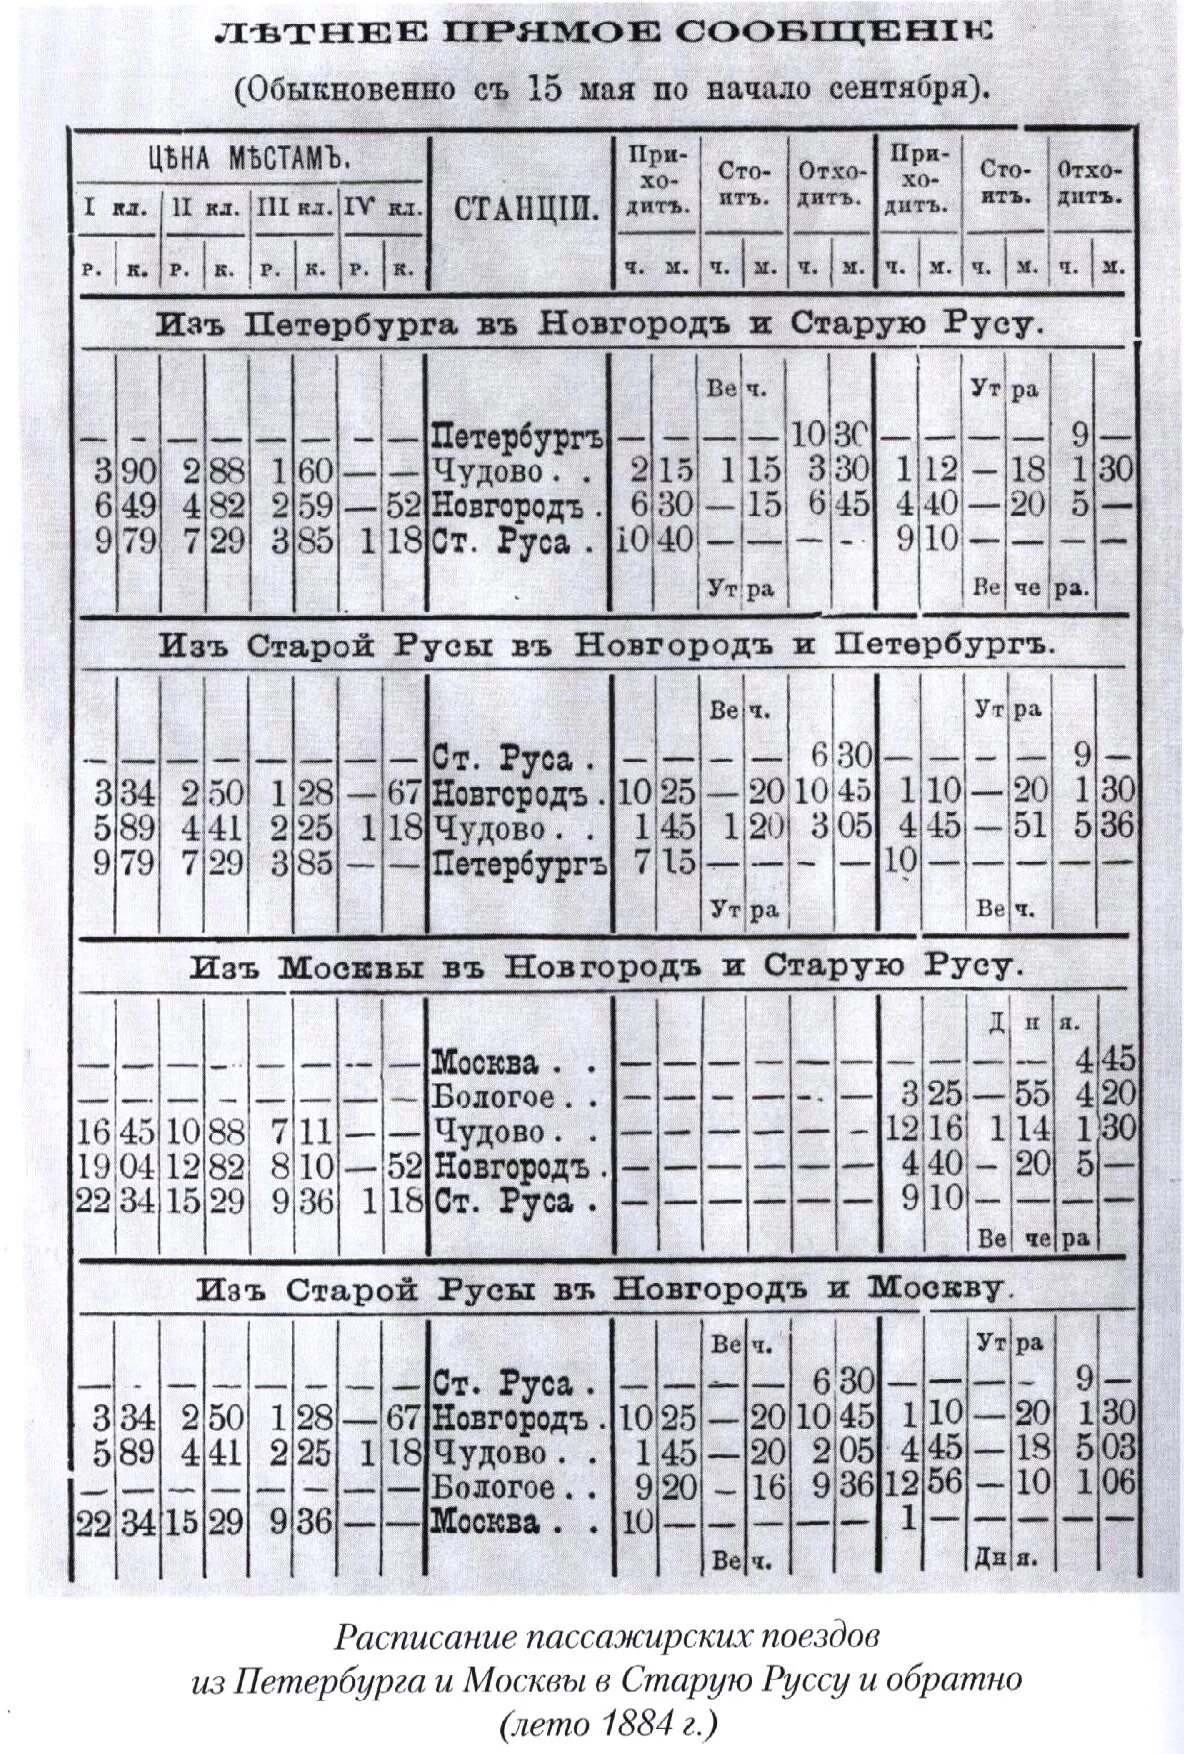 ЛѢТНЕЕ ПРЯМОЕ СООБЩЕНІЕ
(Обыкновенно съ 15 мая по начало сентября).
ЦѢНА МѢСТАМЪ. СТАНЦІИ. При-хо-дитъ. Сто-итъ. Отхо-дитъ. При-хо-дитъ. Сто-итъ. Отхо-дитъ.
I кл. II кл. III кл. IV кл.
р. к. р. к. р. к. р. к. ч. м. ч. м. ч. м. ч. м. ч. м. ч. м.
Изъ Петербурга въ Новгородъ и Старую Русу.
Веч. Утра
— — — — — — — — Петербургъ — — — — 10 30 — — — — 9 —
3 90 2 88 1 60 — — Чудово . . 2 15 1 15 3 30 1 12 — 18 1 30
6 49 4 82 2 59 — 52 Новгородъ . 6 30 — 15 6 45 4 40 — 20 5 —
9 79 7 29 3 85 1 18 Ст. Руса . 10 40 — — — — 9 10 — — — —
Утра Вечера.
Изъ Старой Русы въ Новгородъ и Петербургъ.
Веч. Утра
— — — — — — — — Ст. Руса . — — — — 6 30 — — — — 9 —
3 34 2 50 1 28 — 67 Новгородъ . 10 25 — 20 10 45 1 10 — 20 1 30
5 89 4 41 2 25 1 18 Чудово . . 1 45 1 20 3 05 4 45 — 51 5 36
9 79 7 29 3 85 — — Петербургъ 7 15 — — — — 10 — — — — —
Утра Веч.
Изъ Москвы въ Новгородъ и Старую Русу.
Дня.
— — — — — — — — Москва . . — — — — — — — — — — 4 45
— — — — — — — — Бологое . . — — — — — — 3 25 — 55 4 20
16 45 10 88 7 11 — — Чудово . . — — — — — — 12 16 1 14 1 30
19 04 12 82 8 10 — 52 Новгородъ . — — — — — — 4 40 — 20 5 —
22 34 15 29 9 36 1 18 Ст. Руса . — — — — — — 9 10 — — — —
Вечера
Изъ Старой Русы въ Новгородъ и Москву.
Веч. Утра
— — — — — — — — Ст. Руса . — — — — 6 30 — — — — 9 —
3 34 2 50 1 28 — 67 Новгородъ . 10 25 — 20 10 45 1 10 — 20 1 30
5 89 4 41 2 25 1 18 Чудово . . 1 45 — 20 2 05 4 45 — 18 5 03
— — — — — — — — Бологое . . 9 20 — 16 9 36 12 56 — 10 1 06
22 34 15 29 9 36 — — Москва . . 10 — — — — — 1 — — — — —
Веч. Дня.
Расписание пассажирских поездов
из Петербурга и Москвы в Старую Руссу и обратно
(лето 1884 г.)